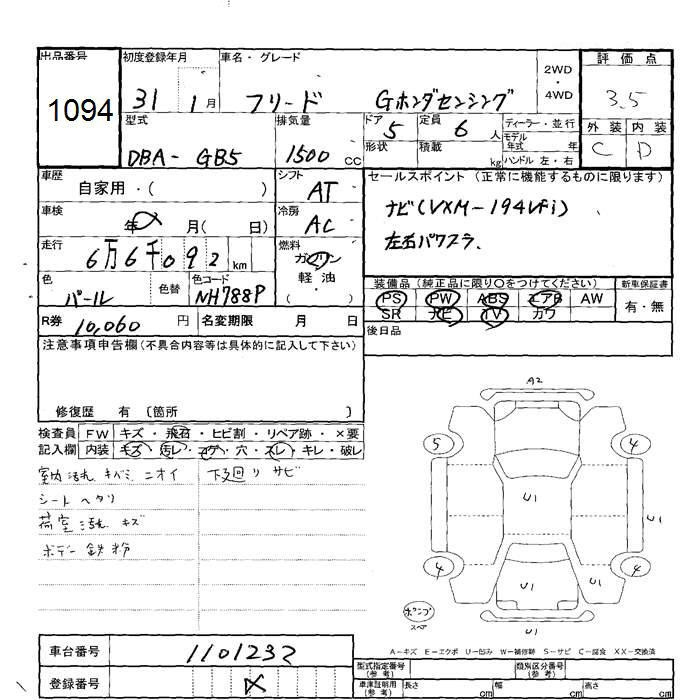 出品番号
1094
初度登録年月
31 1月
車名・グレード
フリード Gホンダセンシング
2WD
・
4WD
評価点
3.5
外装 内装
C D
型式
DBA-GB5
排気量
1500cc
ドア
5
定員
6人
形状
積載
kg
ディーラー・並行
モデル年式 年
ハンドル 左・右
車歴
自家用・( )
シフト
AT
車検
年 月( 日)
冷房
AC
走行
6万6千092km
燃料
ガソリン
軽・油
( )
色
パール
色替
色コード
NH788P
R券
10,060円
名変期限 月 日
セールスポイント(正常に機能するものに限ります)
ナビ(VXM-194VFi)
左右パワスラ
装備品(純正品に限り○をつけてください)
PS PW ABS エアB AW
SR ナビ TV カワ
新車保証書
有・無
後日品
注意事項申告欄(不具合内容等は具体的に記入して下さい)
修復歴 有〔箇所 〕
検査員
記入欄
FW キズ・飛石・ヒビ割・リペア跡・×要
内装 キズ・汚レ・コゲ・穴・スレ・キレ・破レ
室内汚れ キバミ ニオイ
シート ヘタリ
荷室汚れ キズ
ボデー 鉄粉
下廻り サビ
A2
5
4
U1
U1
4
4
U1
U1
U1
ポンプ
スペア
A-キズ E-エクボ U-凹み W-補修跡 S-サビ C-腐食 XX-交換済
車台番号
1101232
登録番号
型式指定番号
(参考)
類別区分番号
(参考)
車庫証明用
(参考)
長さ cm
幅 cm
高さ cm